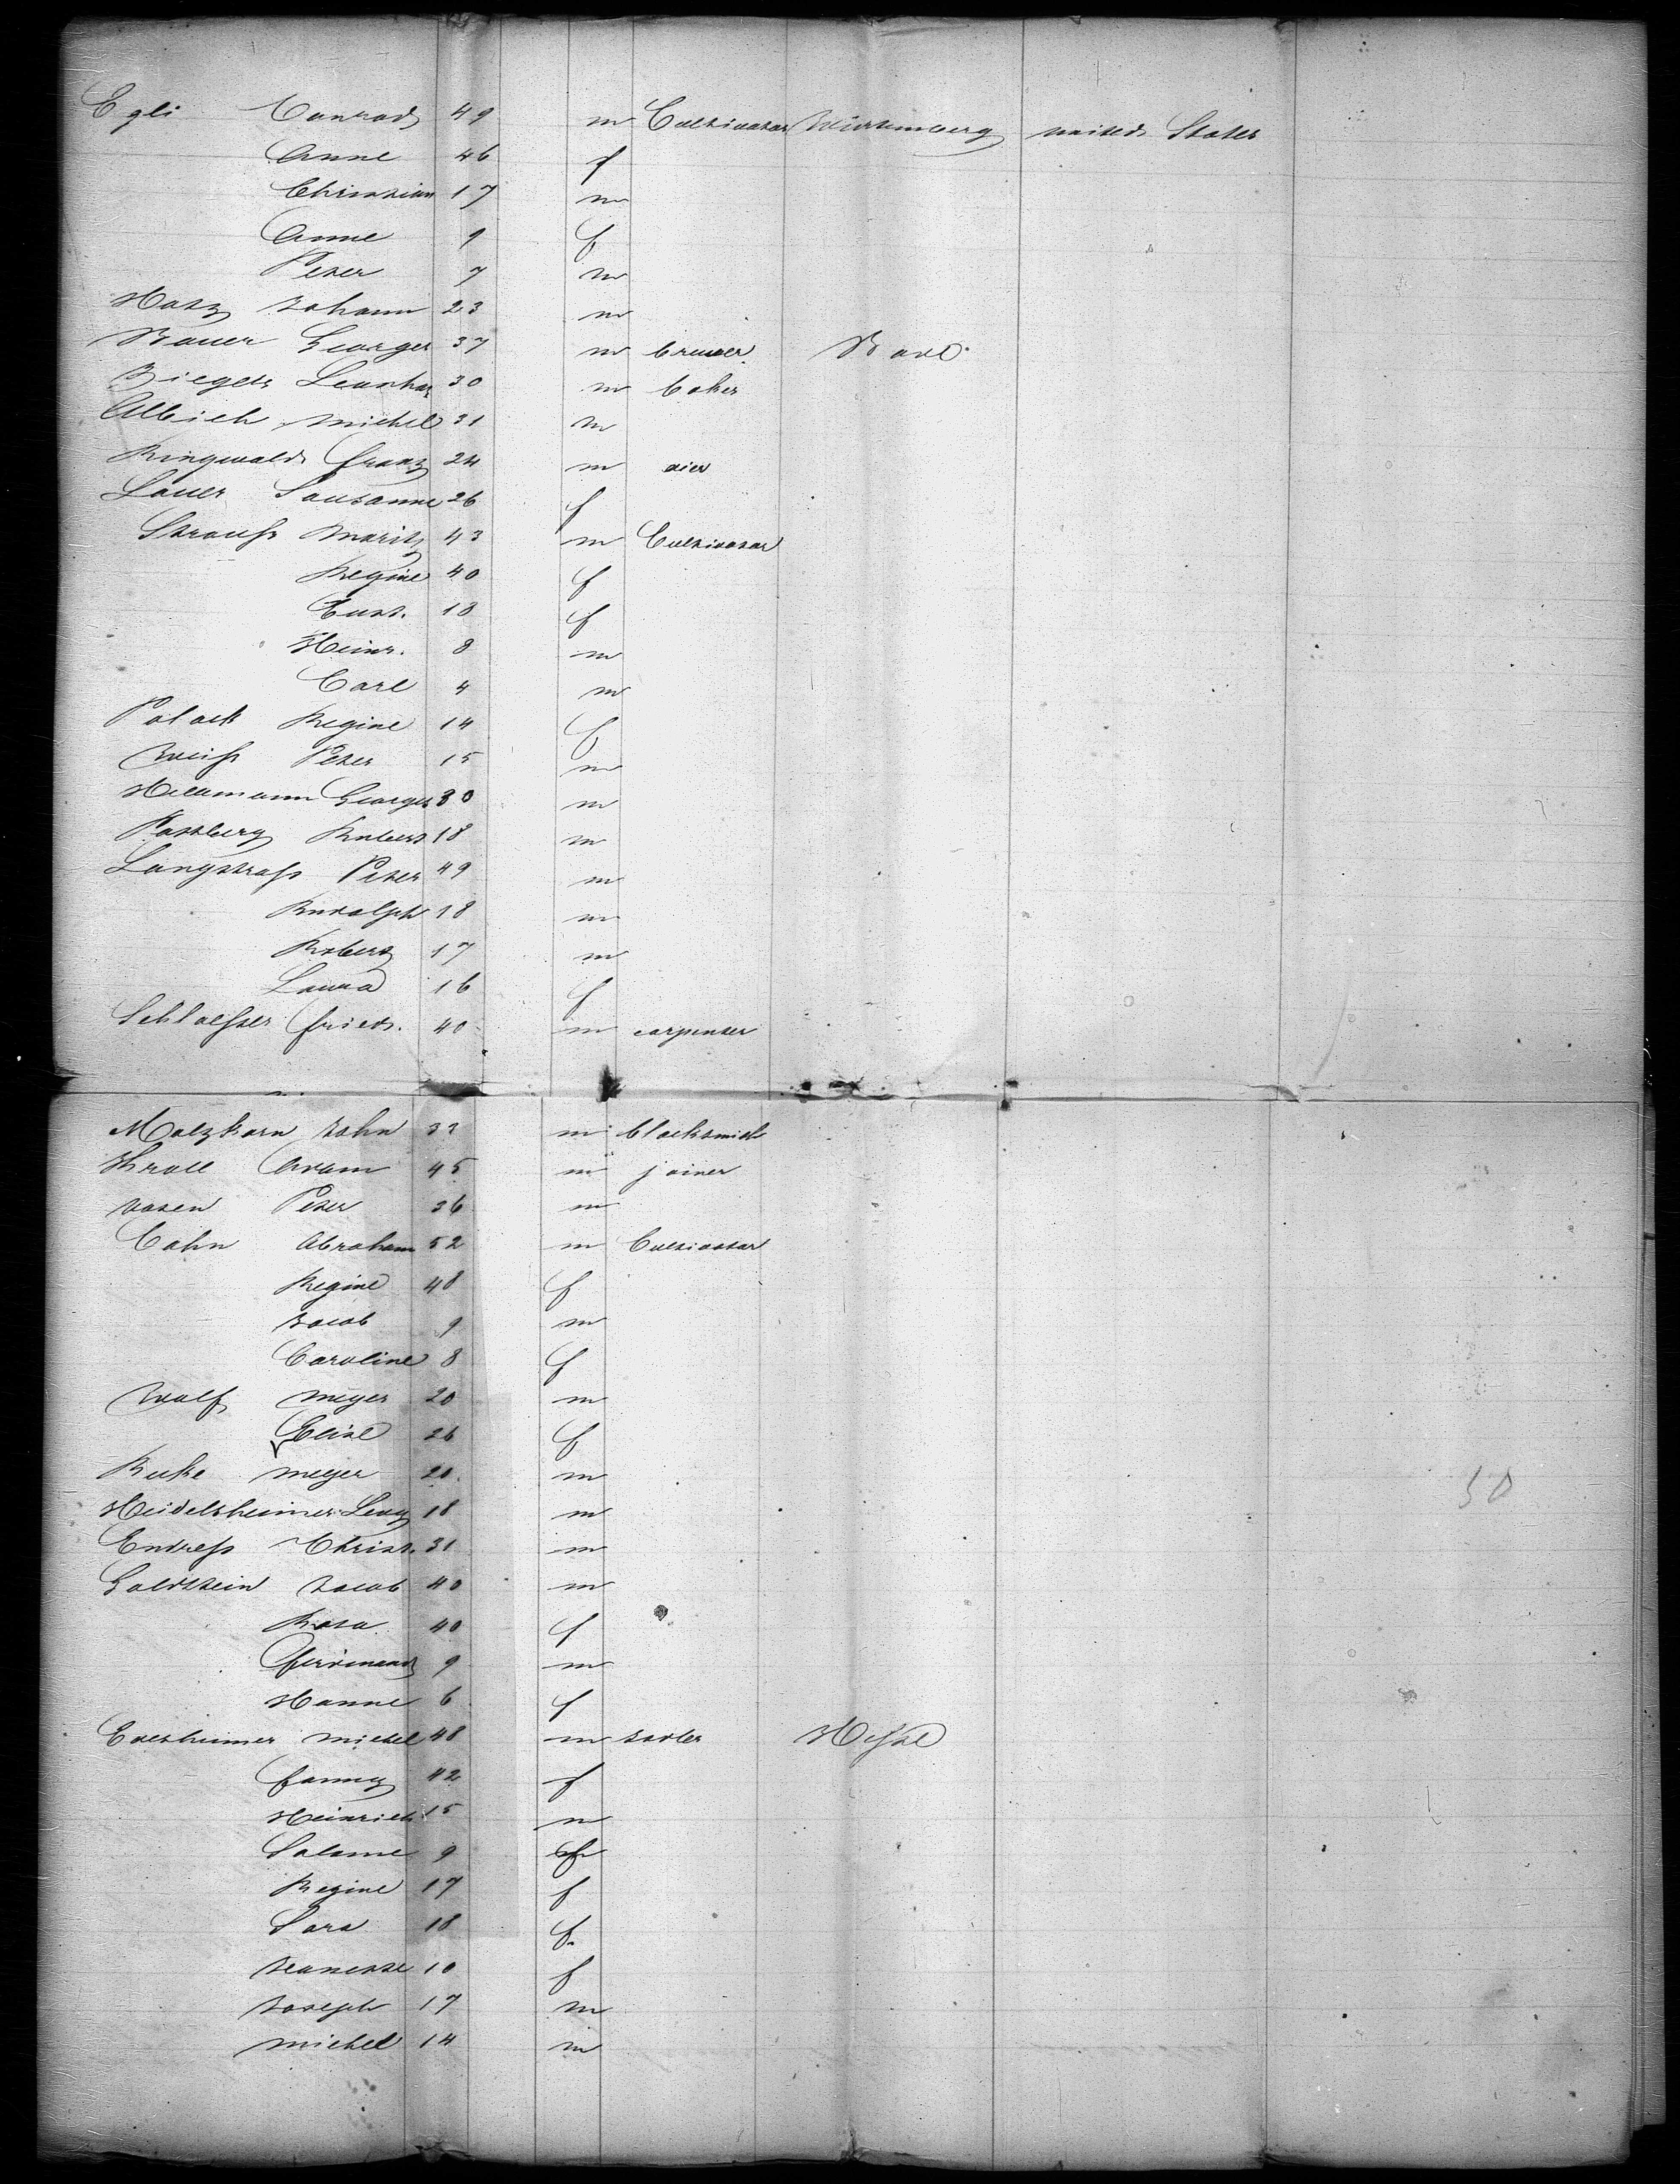 Egli Conrad 49 m Cultivator Würtemberg united States
Anne 46 f
Christian 17 m
Anne 9 f
Peter 7 m
Hatz Johann 23 m
Bauer Georges 37 m bruer Bade
Ziegels 30 m baker
Albich Michel 31 m
Ringwald franz 24 m
Lauer Sousanne 26 f
Strauss Moritz 43 m Cultivator
Regine 40 f
18 f
Heinr. 8 m
Carl 4 m
Polack Regine 14 f
Weiss Peter 15 m
Georges 30 m
Robert 18 m
Langstrass Peter 49 m
Rudolph 18 m
Robert 17 m
Laura 16 f
fried. 40 m carpenter
Malzkorn John m blacksmith
Kroll Adam 45 m joiner
Peter 36 m
Cahn Abraham 52 m Cultivator
Regine 48 f
Jacob 9 m
Caroline 8 f
Wolf Meyer 20 m
26 f
Meyer 20 m
Heidelsheimer Levy 18 m
Endress Christ. 31 m
Goldstein Jacob 40 m
Rosa 40 f
ferdinand 9 m
Hanne 6 f
Edesheimer Michel 48 m sadler Hesse
fanny 42 f
Heinrich 15 m
Salome 9
Regine 17 f
Sara 18 f.
Jeanette 10 f
Joseph 17 m
Michel 14 m